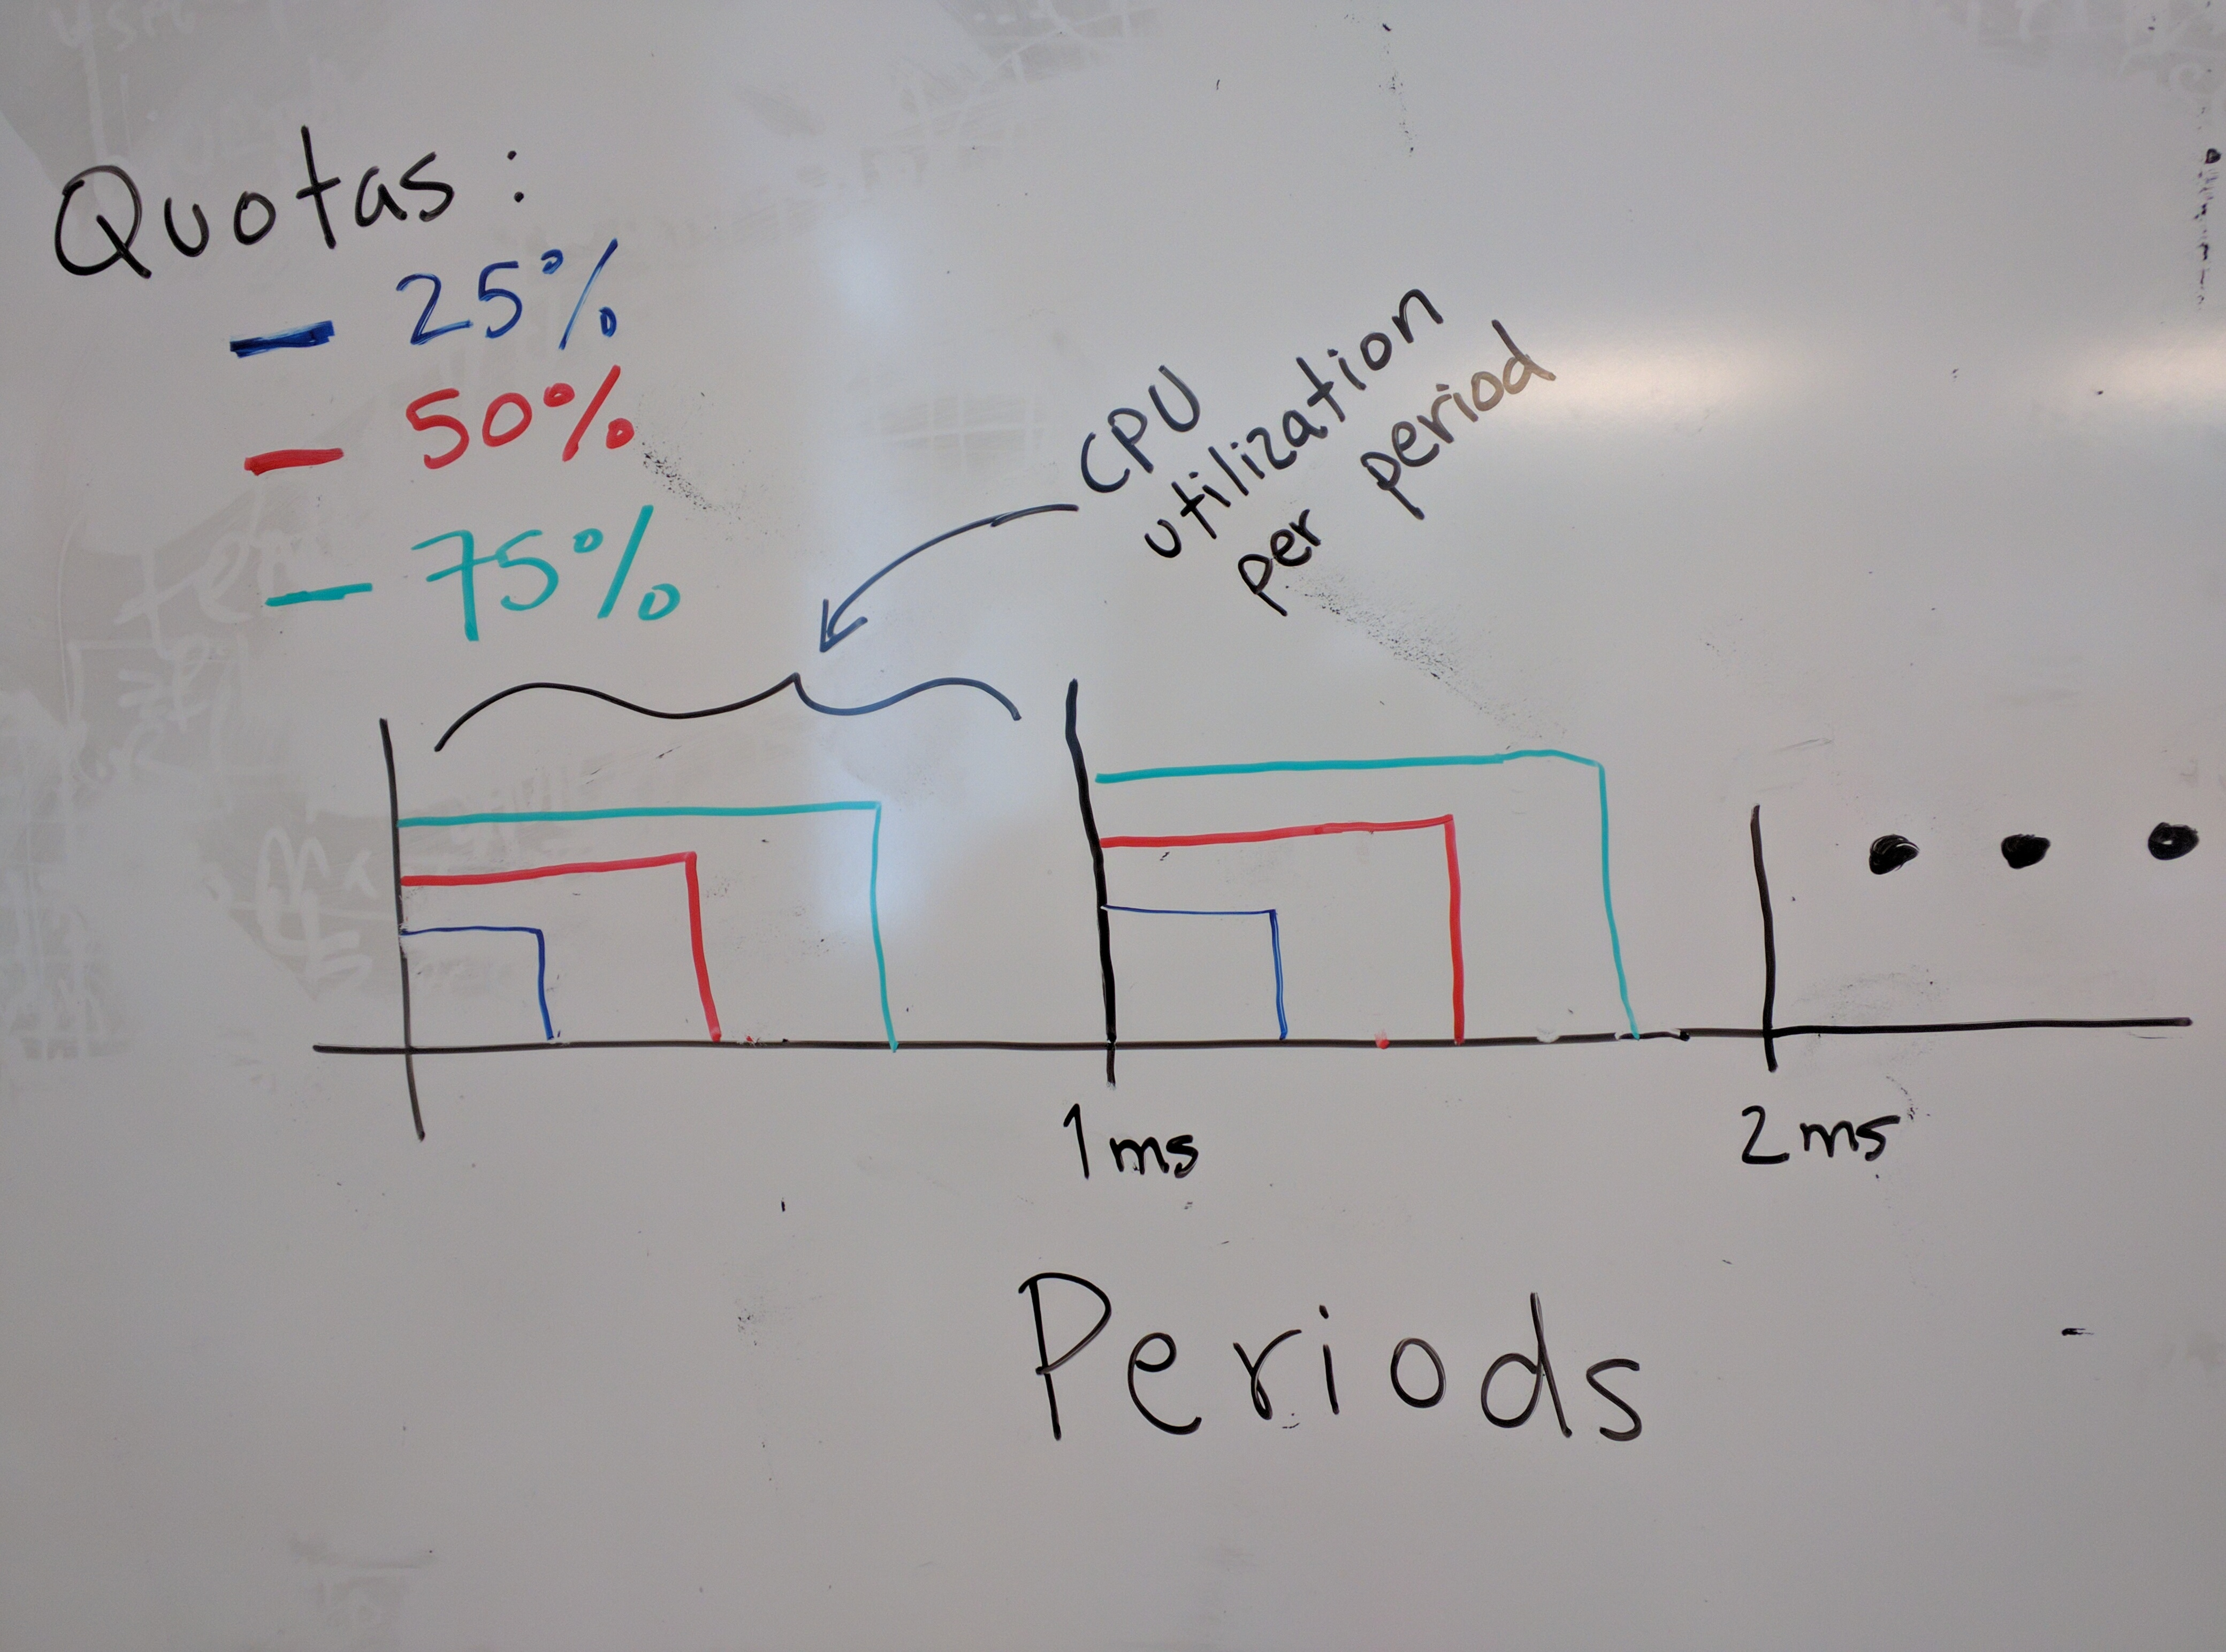 Quotas:
25%
50%
75%
CPU
utilization
per period
1ms
2ms
Periods